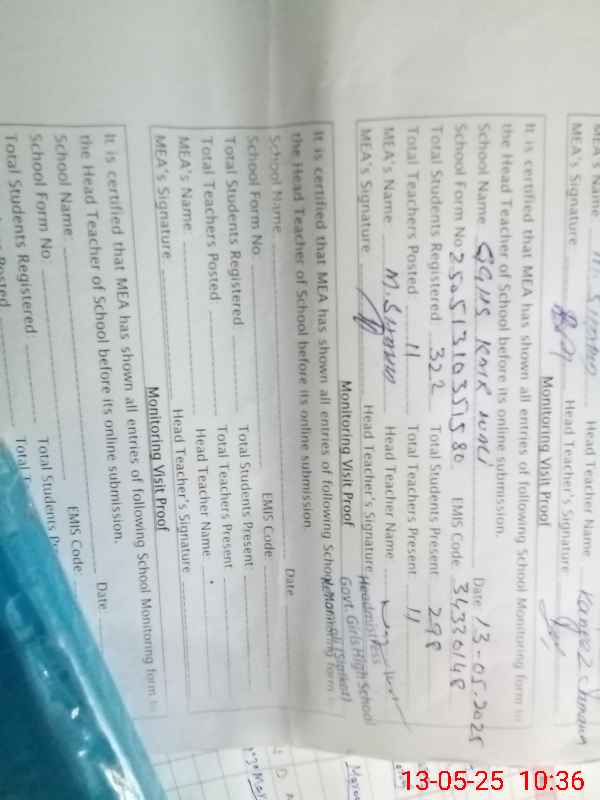 MEA's Name Head Teacher Name
MEA's Signature Head Teacher's Signature
Monitoring Visit Proof
It is certified that MEA has shown all entries of following School Monitoring form to
the Head Teacher of School before its online submission.
School Name GGHS Date 13-05.2025
School Form No 25051310351580 EMIS Code 34330148
Total Students Registered 322 Total Students Present 298
Total Teachers Posted 11 Total Teachers Present 11
MEA's Name Head Teacher Name
MEA's Signature Head Teacher's Signature
Headmistress
Govt. Girls High School
(Sialkot)
Monitoring Visit Proof
It is certified that MEA has shown all entries of following School Monitoring form
the Head Teacher of School before its online submission
School Name Date
School Form No EMIS Code
Total Students Registered Total Students Present
Total Teachers Posted Total Teachers Present
MEA's Name Head Teacher Name
MEA's Signature Head Teacher's Signature
Monitoring Visit Proof
It is certified that MEA has shown all entries of following School Monitoring form to
the Head Teacher of School before its online submission.
School Name Date
School Form No EMIS Code
Total Students Registered Total Students
Posted Total
13-05-25 10:36